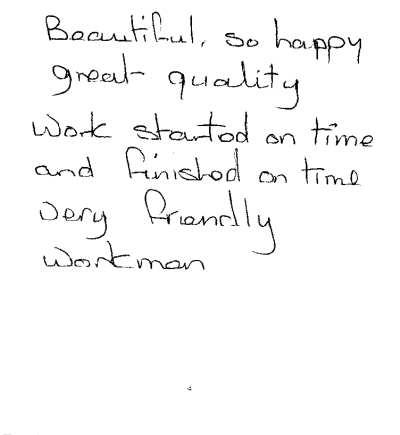 Beautiful, so happy
great quality
work started on time
and finished on time
very friendly
workman